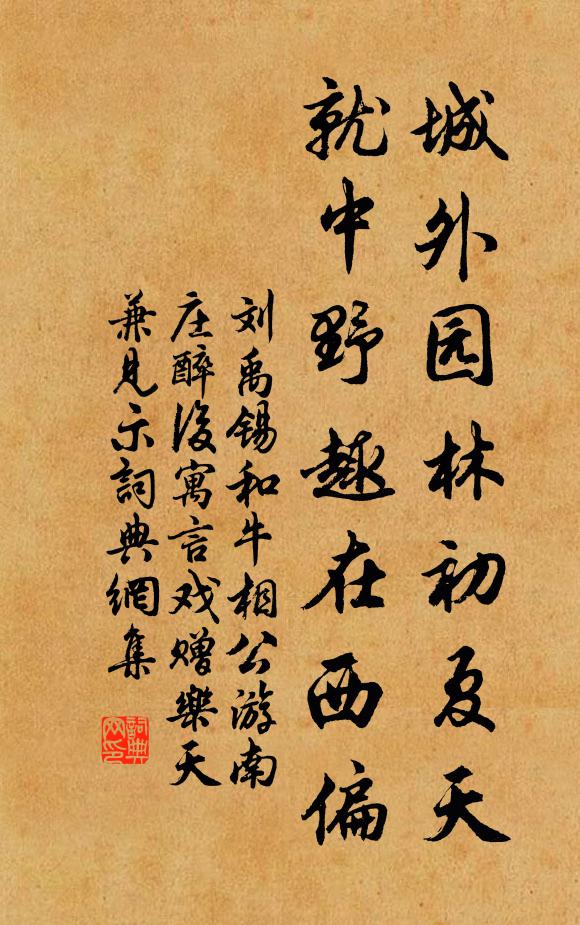 城外园林初夏天
就中野趣在西偏
刘禹锡和牛相公游南
庄醉後寓言戏赠樂天
兼見示詞典網集
詞典网印